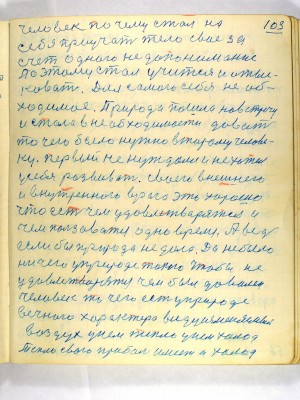 103
человек почему стал на
себя приучат тело свое за
счет одного недопонимание
поэтому стал учится и отыс-
коват. Для самого себя необ-
ходимое. Природа пошла навстречу
и стала в необходимости довать
то чего было нужно второму челове-
ку. первый не нуждался и не хотел
у себя розвиват. своего внешнего
и внутренного врага это хорошо
что ест чем удовлетварятся и
чем ползоватся одно время. А вед
если бы природа не дала. Да не было
ничего у природе токого чтобы не
удовлетворятся чем был доволен
человек то чего ест у природе
вечного характера видуизменения
воздух у нем тепло у нем холод
тепло свого прибал имеет а холод